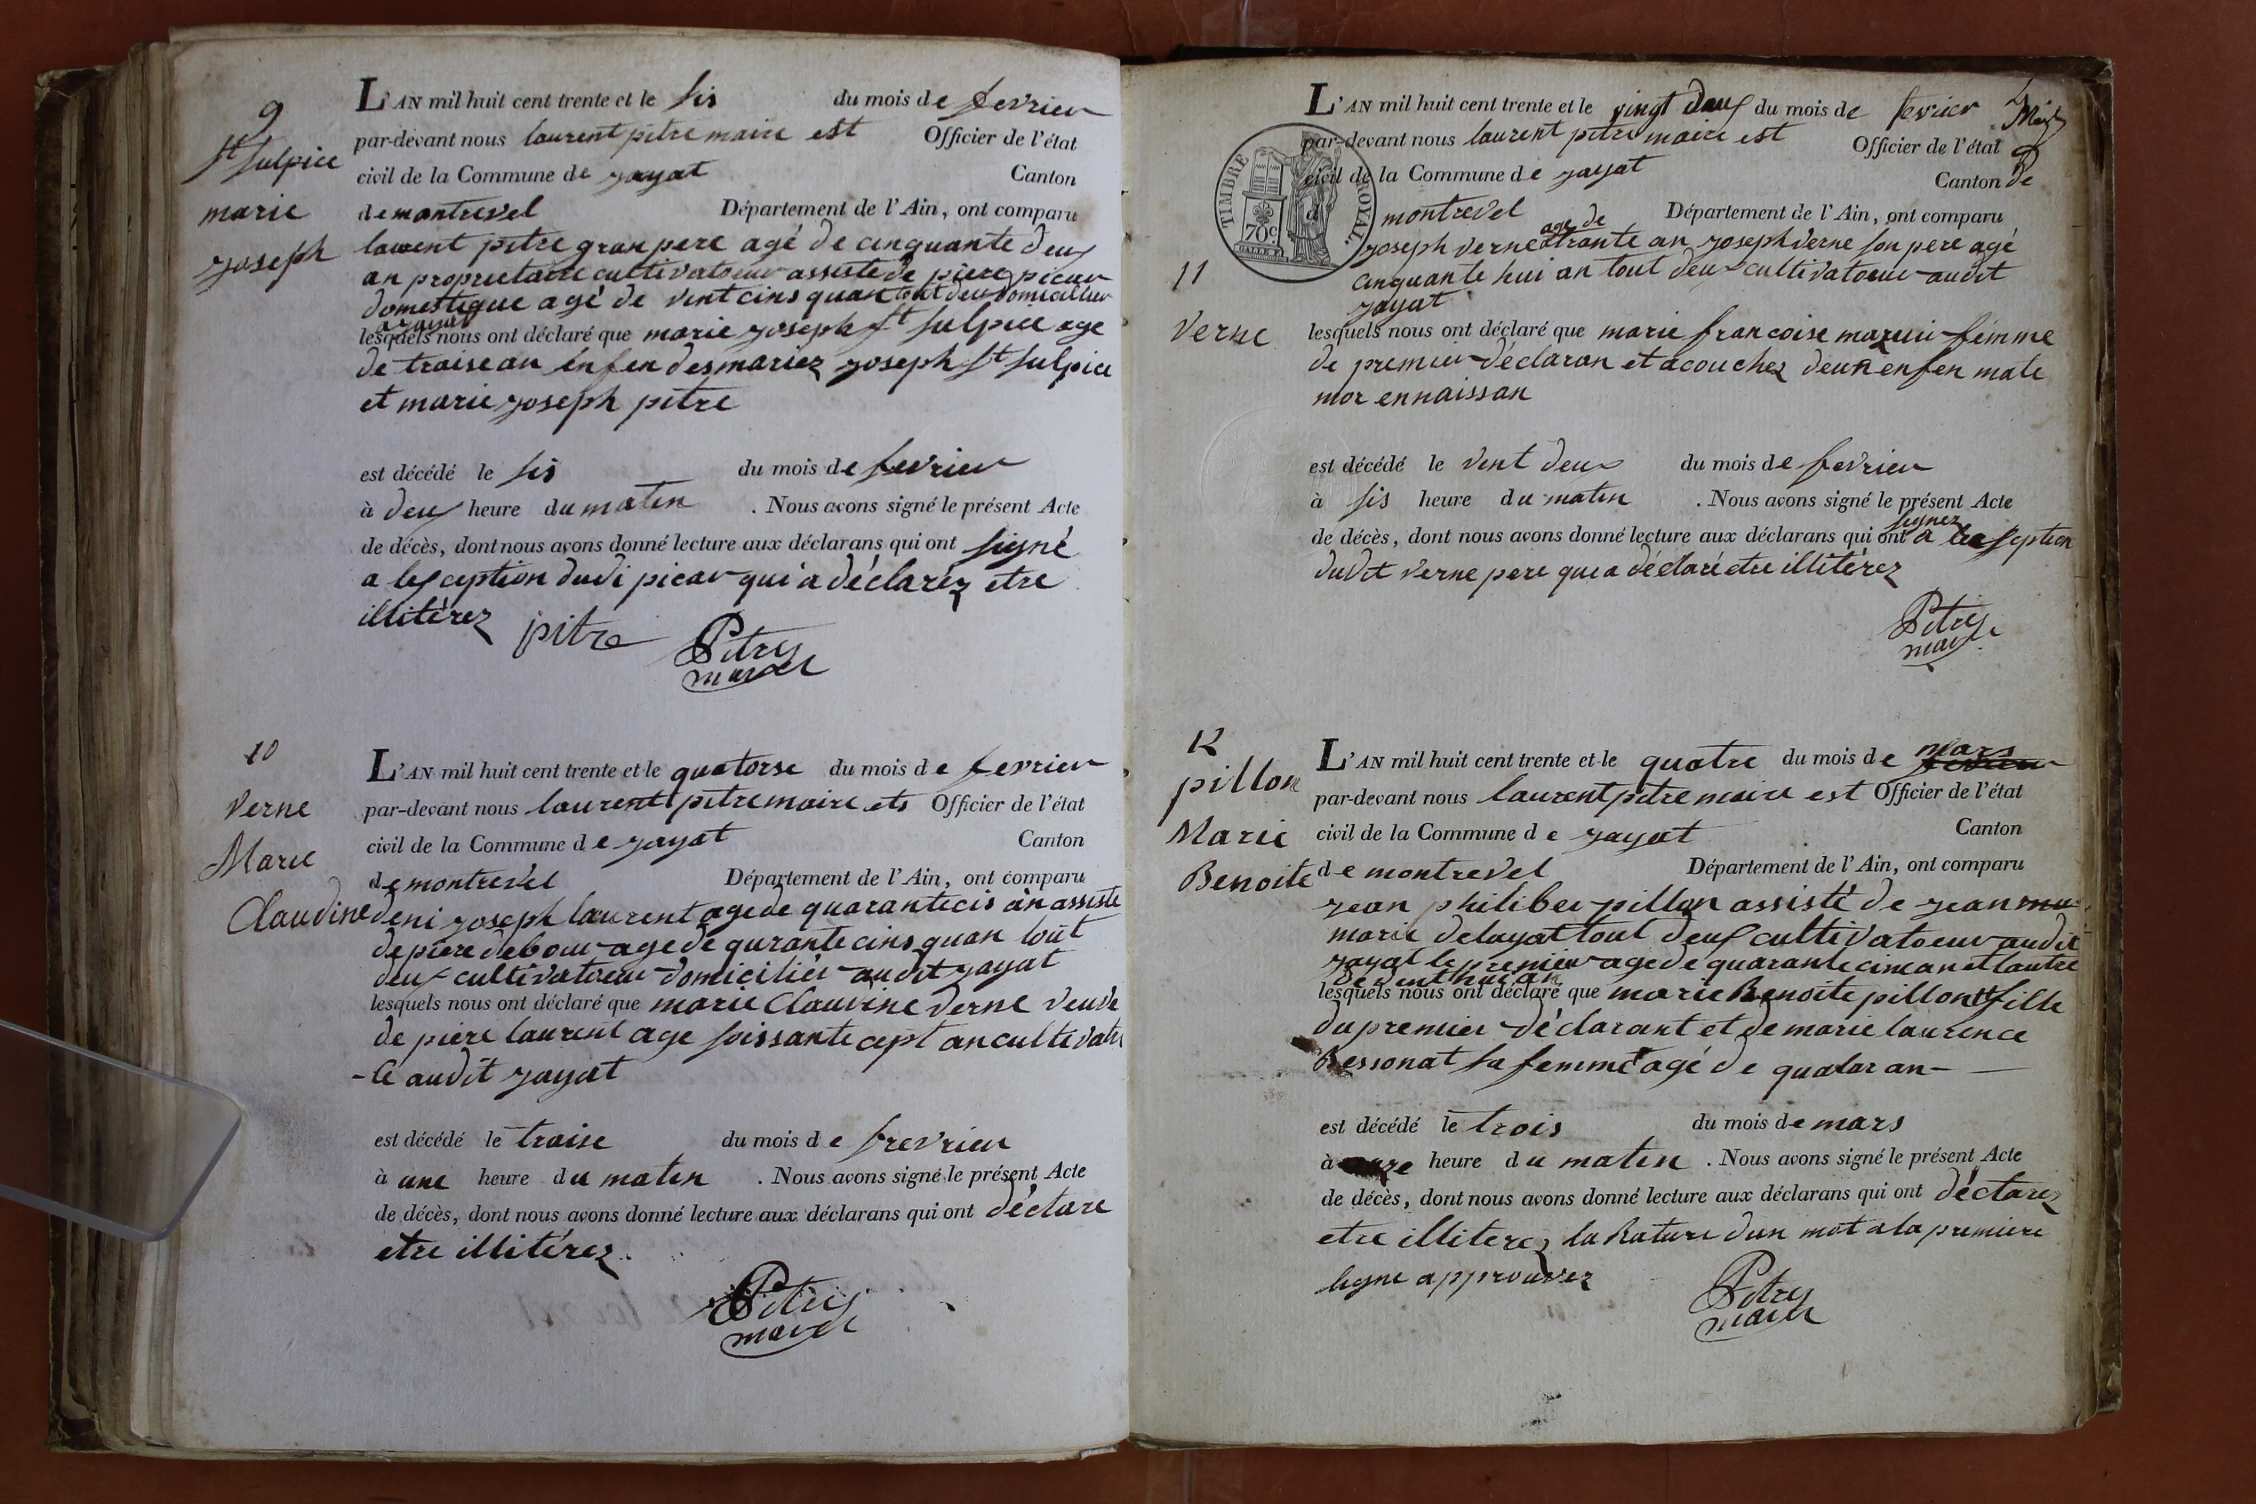 9
St Sulpice
marie
joseph
L'AN mil huit cent trente et le sis du mois de fevrier
par-devant nous laurent pitre maire est Officier de l'état
civil de la Commune de jayat Canton
de montrevel Département de l'Ain, ont comparu
laurent pitre gran pere agé de cinquante deux
an proprietaire cultivatoeur assisté de piere picar
domestique agé de vent cins quan tout deu domicilier
a jayat
lesquels nous ont déclaré que marie joseph St Sulpice age
de traise an enfen des mariez joseph St Sulpice
et marie joseph pitre
est décédé le sis du mois de fevrier
à deux heure du matin . Nous avons signé le présent Acte
de décès, dont nous avons donné lecture aux déclarans qui ont signé
a lesception dudi picar qui a déclaréz etre
illitérez pitre Pitre
maire
10
Verne
Marie
Claudine
L'AN mil huit cent trente et le quatorse du mois de fevrier
par-devant nous laurent pitre maire ets Officier de l'état
civil de la Commune de jayat Canton
de montrevel Département de l'Ain, ont comparu
deni joseph laurent age de quarante cis an assiste
de piere debour age de qurante cins quan tout
deux cultivatoeur domiciliér audit jayat
lesquels nous ont déclaré que marie Claudine verne veuve
de piere laurent age soissante cept an cultivatr
-ce audit jayat
est décédé le traise du mois de frevrier
à une heure du matin . Nous avons signé le présent Acte
de décès, dont nous avons donné lecture aux déclarans qui ont déclare
etre illitérez.
Pitre
maire
L'AN mil huit cent trente et le vingt deux du mois de fevrier
par-devant nous laurent pitre maire est Officier de l'état
civil de la Commune de jayat Canton de
TIMBRE ROYAL
70c
d montrevel Département de l'Ain, ont comparu
age de
joseph verne trante an joseph verne son pere agé
cinquante hui an tout deux cultivatoeur audit
jayat
11
Verne
lesquels nous ont déclaré que marie francoise femme
de premier déclaran et acouchez deun enfen male
mor ennaissan
est décédé le vent deux du mois de fevrier
à sis heure du matin . Nous avons signé le présent Acte
signez
de décès, dont nous avons donné lecture aux déclarans qui ont a lesception
dudit verne pere que a déclaré etre illitérez
Pitre
maire
12
pillon
Marie
Benoite
L'AN mil huit cent trente et le quatre du mois de mars fevrier
par-devant nous laurent pitre maire est Officier de l'état
civil de la Commune de jayat Canton
de montrevel Département de l'Ain, ont comparu
jean philiber pillon assisté de jean ma
marie delayat tout deux cultivatoeur audit
jayat le premier age de quarante cinc an et lautre
de vent huit an
lesquels nous ont déclaré que marie Benoite pillon fille
du premier déclarant et de marie laurence
Bessonat sa femme agé de quator an
est décédé le trois du mois de mars
à onze heure du matin . Nous avons signé le présent Acte
de décès, dont nous avons donné lecture aux déclarans qui ont déclarez
etre illiterez la Rature dun mot a la premiere
legne approuvez
Pitre
maire